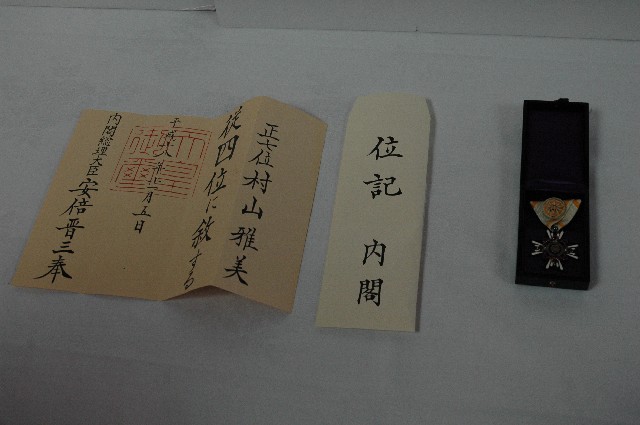 正七位村山雅美
従四位に叙する
平成十八年十一月五日
内閣総理大臣 安倍晋三奉
天皇御璽
位記 内閣